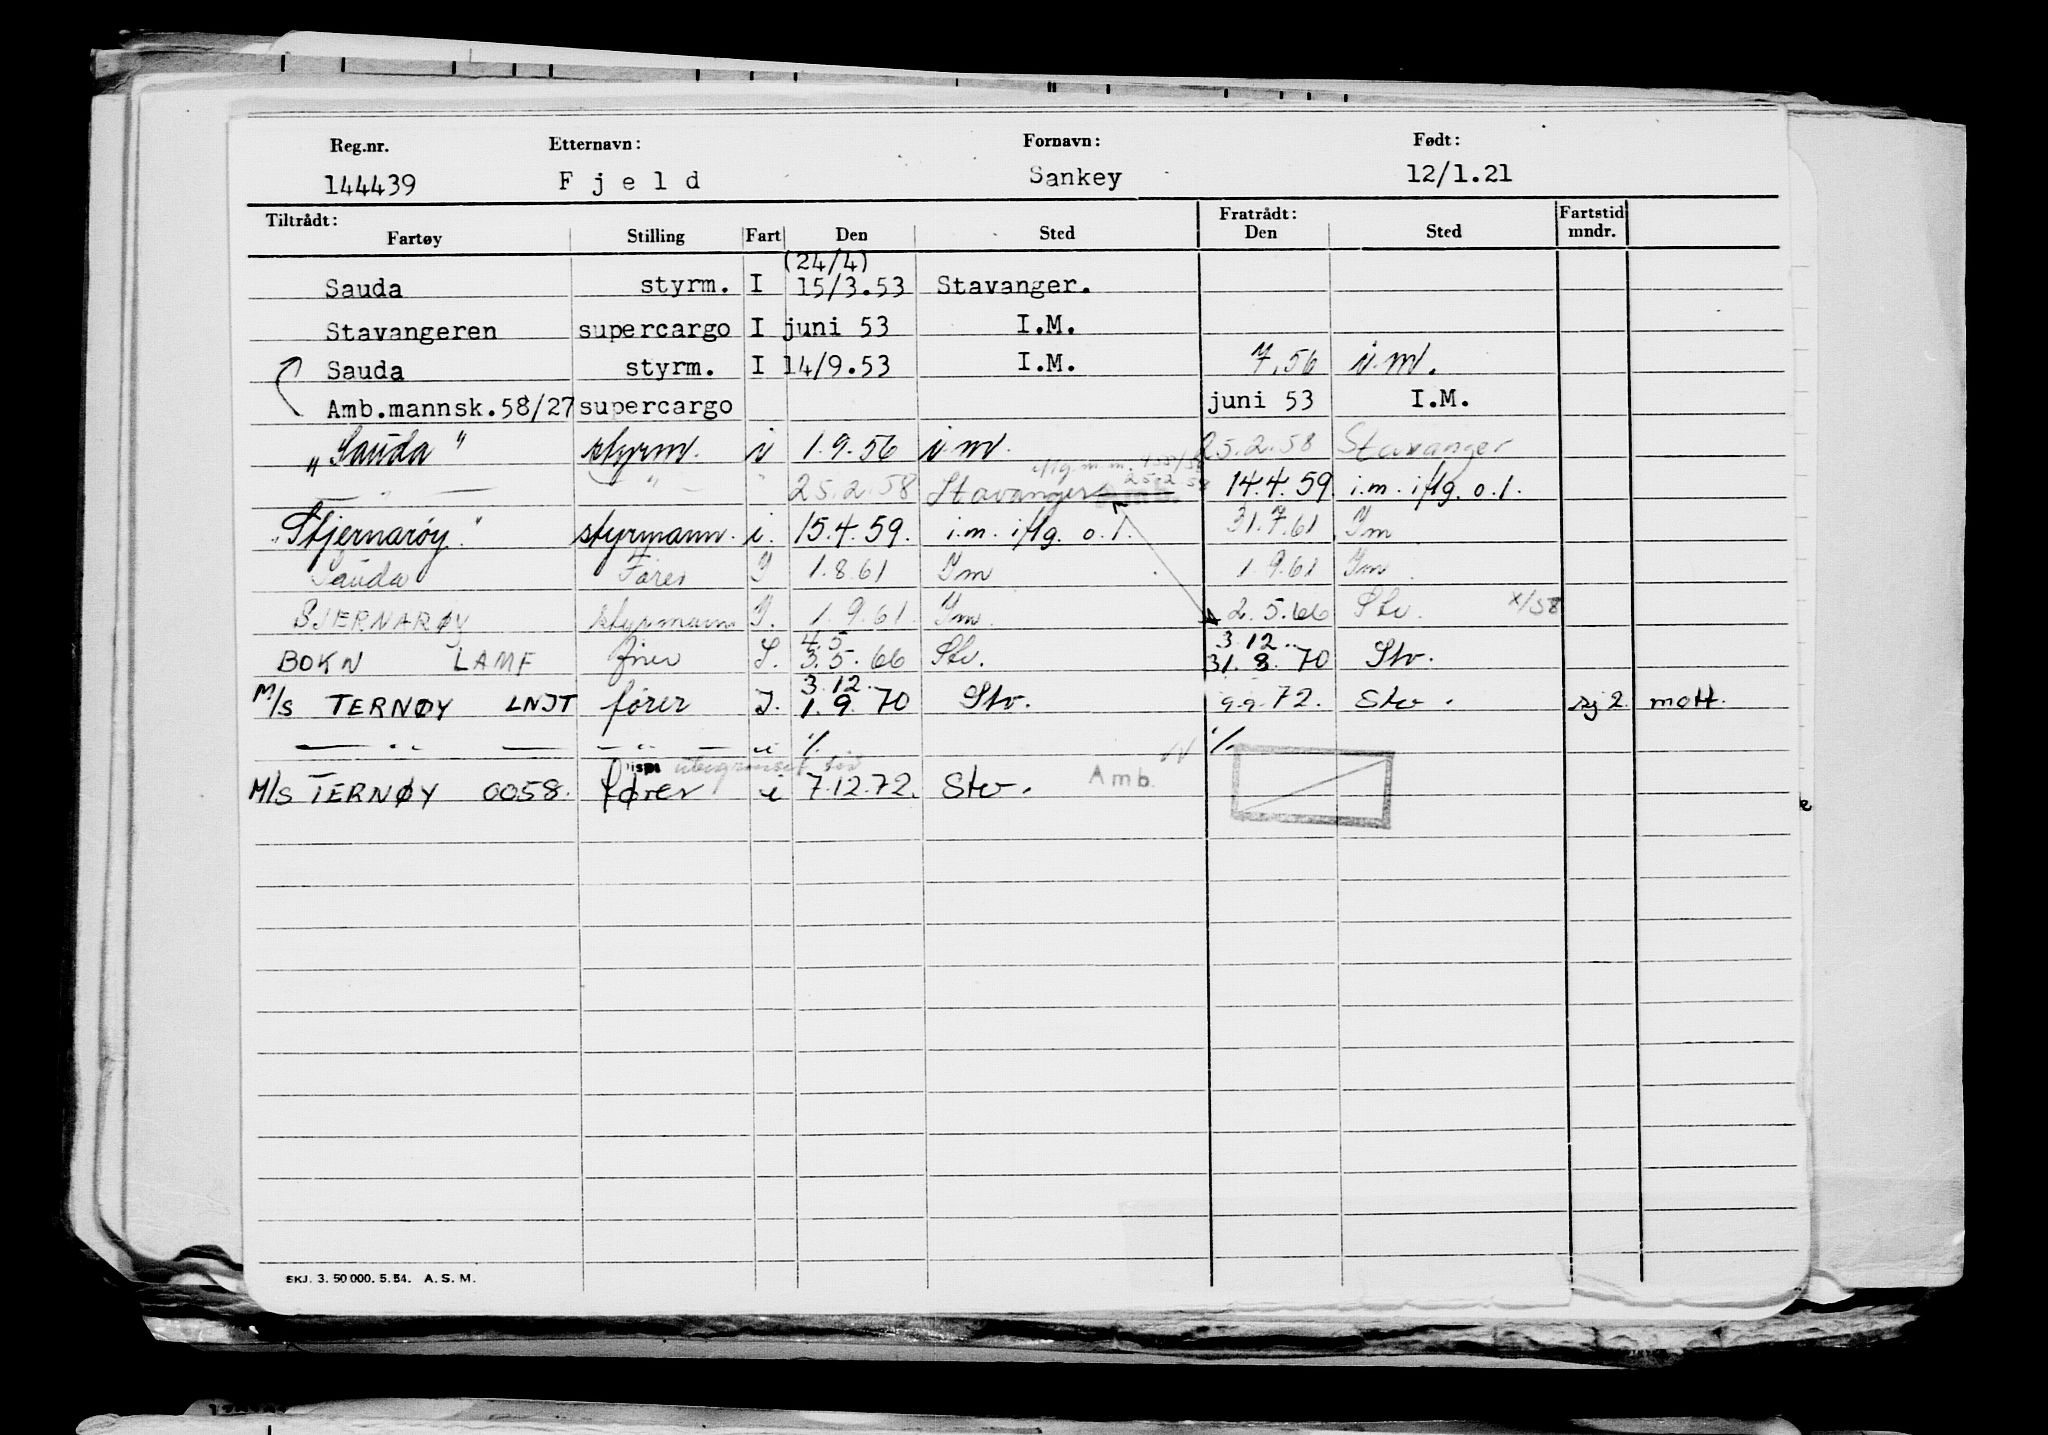 Reg.nr. Etternavn: Fornavn: Født:
144439 Fjeld Sankey 12/1.21
Tiltrådt: Fratrådt: Fartstid
Fartøy Stilling Fart Den Sted Den Sted mndr.
(24/4)
Sauda styrm. I 15/3.53 Stavanger.
Stavangeren supercargo I juni 53 I.M.
Sauda styrm. I 14/9.53 I.M. 7.56 i.m.
Amb.mannsk.58/27 supercargo juni 53 I.M.
"Sauda" styrm. i 1.9.56 i.m. 25.2.58 Stavanger
25.2.58
— " — — " — " 25.2.58 Stavanger 14.4.59 i.m. iflg. o.l.
"Stjernarøy" styrmann. i. 15.4.59. i.m. iflg. o.l. 31.7.61 Im
Sauda Fører I 1.8.61 Im 1.9.61 Im
SJERNARØY styrmann I. 1.9.61. Im. 2.5.66 Stv. x/58
4.5 3.12.
BOKN LAMF fører I. 3.5.66 Stv. 31.8.70 Stv.
3.12.
M/S TERNØY LNJT fører I. 1.9.70 Stv. 9.9.72. Stv. sj 2. mott.
— " — — " — i % %
disp. ubegrenset
M/S TERNØY 0058. fører i 7.12.72. Stv. Amb.
SKJ. 3. 50 000. 5. 54. A. S. M.